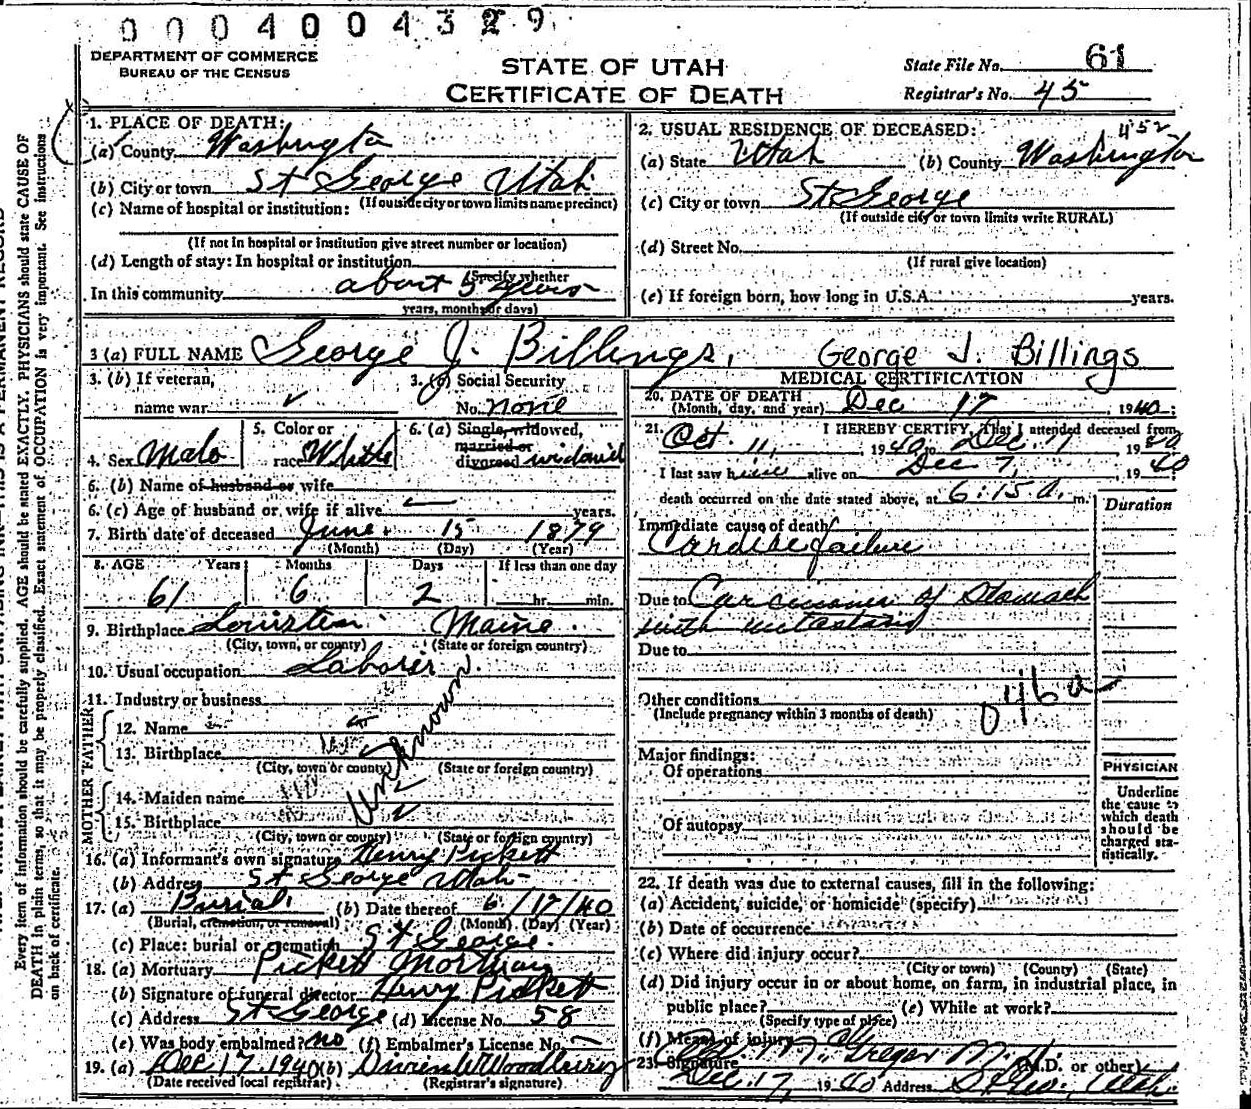 0004004329
DEPARTMENT OF COMMERCE
BUREAU OF THE CENSUS
STATE OF UTAH
CERTIFICATE OF DEATH
State File No. 61
Registrar's No. 45
1. PLACE OF DEATH:
(a) County Washington
(b) City or town St George Utah
(c) Name of hospital or institution: (If outside city or town limits name precinct)
(If not in hospital or institution give street number or location)
(d) Length of stay: In hospital or institution
(Specify whether
In this community about 5 years
years, months or days)
2. USUAL RESIDENCE OF DECEASED: 452
(a) State Utah (b) County Washington
(c) City or town St George
(If outside city or town limits write RURAL)
(d) Street No.
(If rural give location)
(e) If foreign born, how long in U.S.A. years.
3 (a) FULL NAME George J. Billings, George J. Billings
3. (b) If veteran,
name war
3. (c) Social Security
No. none
4. Sex Male
5. Color or
race White
6. (a) Single, widowed,
married or
divorced widowed
6. (b) Name of husband or wife
6. (c) Age of husband or wife if alive years.
7. Birth date of deceased June 15 1879
(Month) (Day) (Year)
8. AGE Years Months Days If less than one day
61 6 2 hr. min.
9. Birthplace Maine
(City, town, or county) (State or foreign country)
10. Usual occupation Laborer
11. Industry or business
FATHER
12. Name
13. Birthplace
(City, town or county) (State or foreign country)
Unknown
MOTHER
14. Maiden name
15. Birthplace
(City, town or county) (State or foreign country)
16. (a) Informant's own signature Henry Pickett
(b) Address St George Utah
17. (a) Burial (b) Date thereof 6/17/40
(Burial, cremation, or removal) (Month) (Day) (Year)
(c) Place: burial or cremation St George
18. (a) Mortuary Pickett Mortuary
(b) Signature of funeral director Henry Pickett
(c) Address St George (d) License No. 58
(e) Was body embalmed? no (f) Embalmer's License No.
19. (a) Dec 17, 1940 (b) Woodbury
(Date received local registrar) (Registrar's signature)
MEDICAL CERTIFICATION
20. DATE OF DEATH
(Month, day, and year) Dec 17, 1940;
21. I HEREBY CERTIFY, That I attended deceased from
Oct. 11, 1940 to Dec. 17 1940
I last saw him alive on Dec 7, 1940
death occurred on the date stated above, at 6:15 a. m.
Duration
Immediate cause of death
Cardiac failure
Due to Carcinoma of Stomach
with metastasis
Due to
Other conditions 046a
(Include pregnancy within 3 months of death)
Major findings:
Of operations
Of autopsy
PHYSICIAN
Underline
the cause to
which death
should be
charged sta-
tistically.
22. If death was due to external causes, fill in the following:
(a) Accident, suicide, or homicide (specify)
(b) Date of occurrence
(c) Where did injury occur?
(City or town) (County) (State)
(d) Did injury occur in or about home, on farm, in industrial place, in
public place? (e) While at work?
(Specify type of place)
(f) Means of injury
23. Signature McGregor M.D. (M.D. or other)
Dec. 17 1940 Address St Geo, Utah
Every item of information should be carefully supplied. AGE should be stated EXACTLY. PHYSICIANS should state CAUSE OF
DEATH in plain terms, so that it may be properly classified. Exact statement of OCCUPATION is very important. See instructions
on back of certificate.